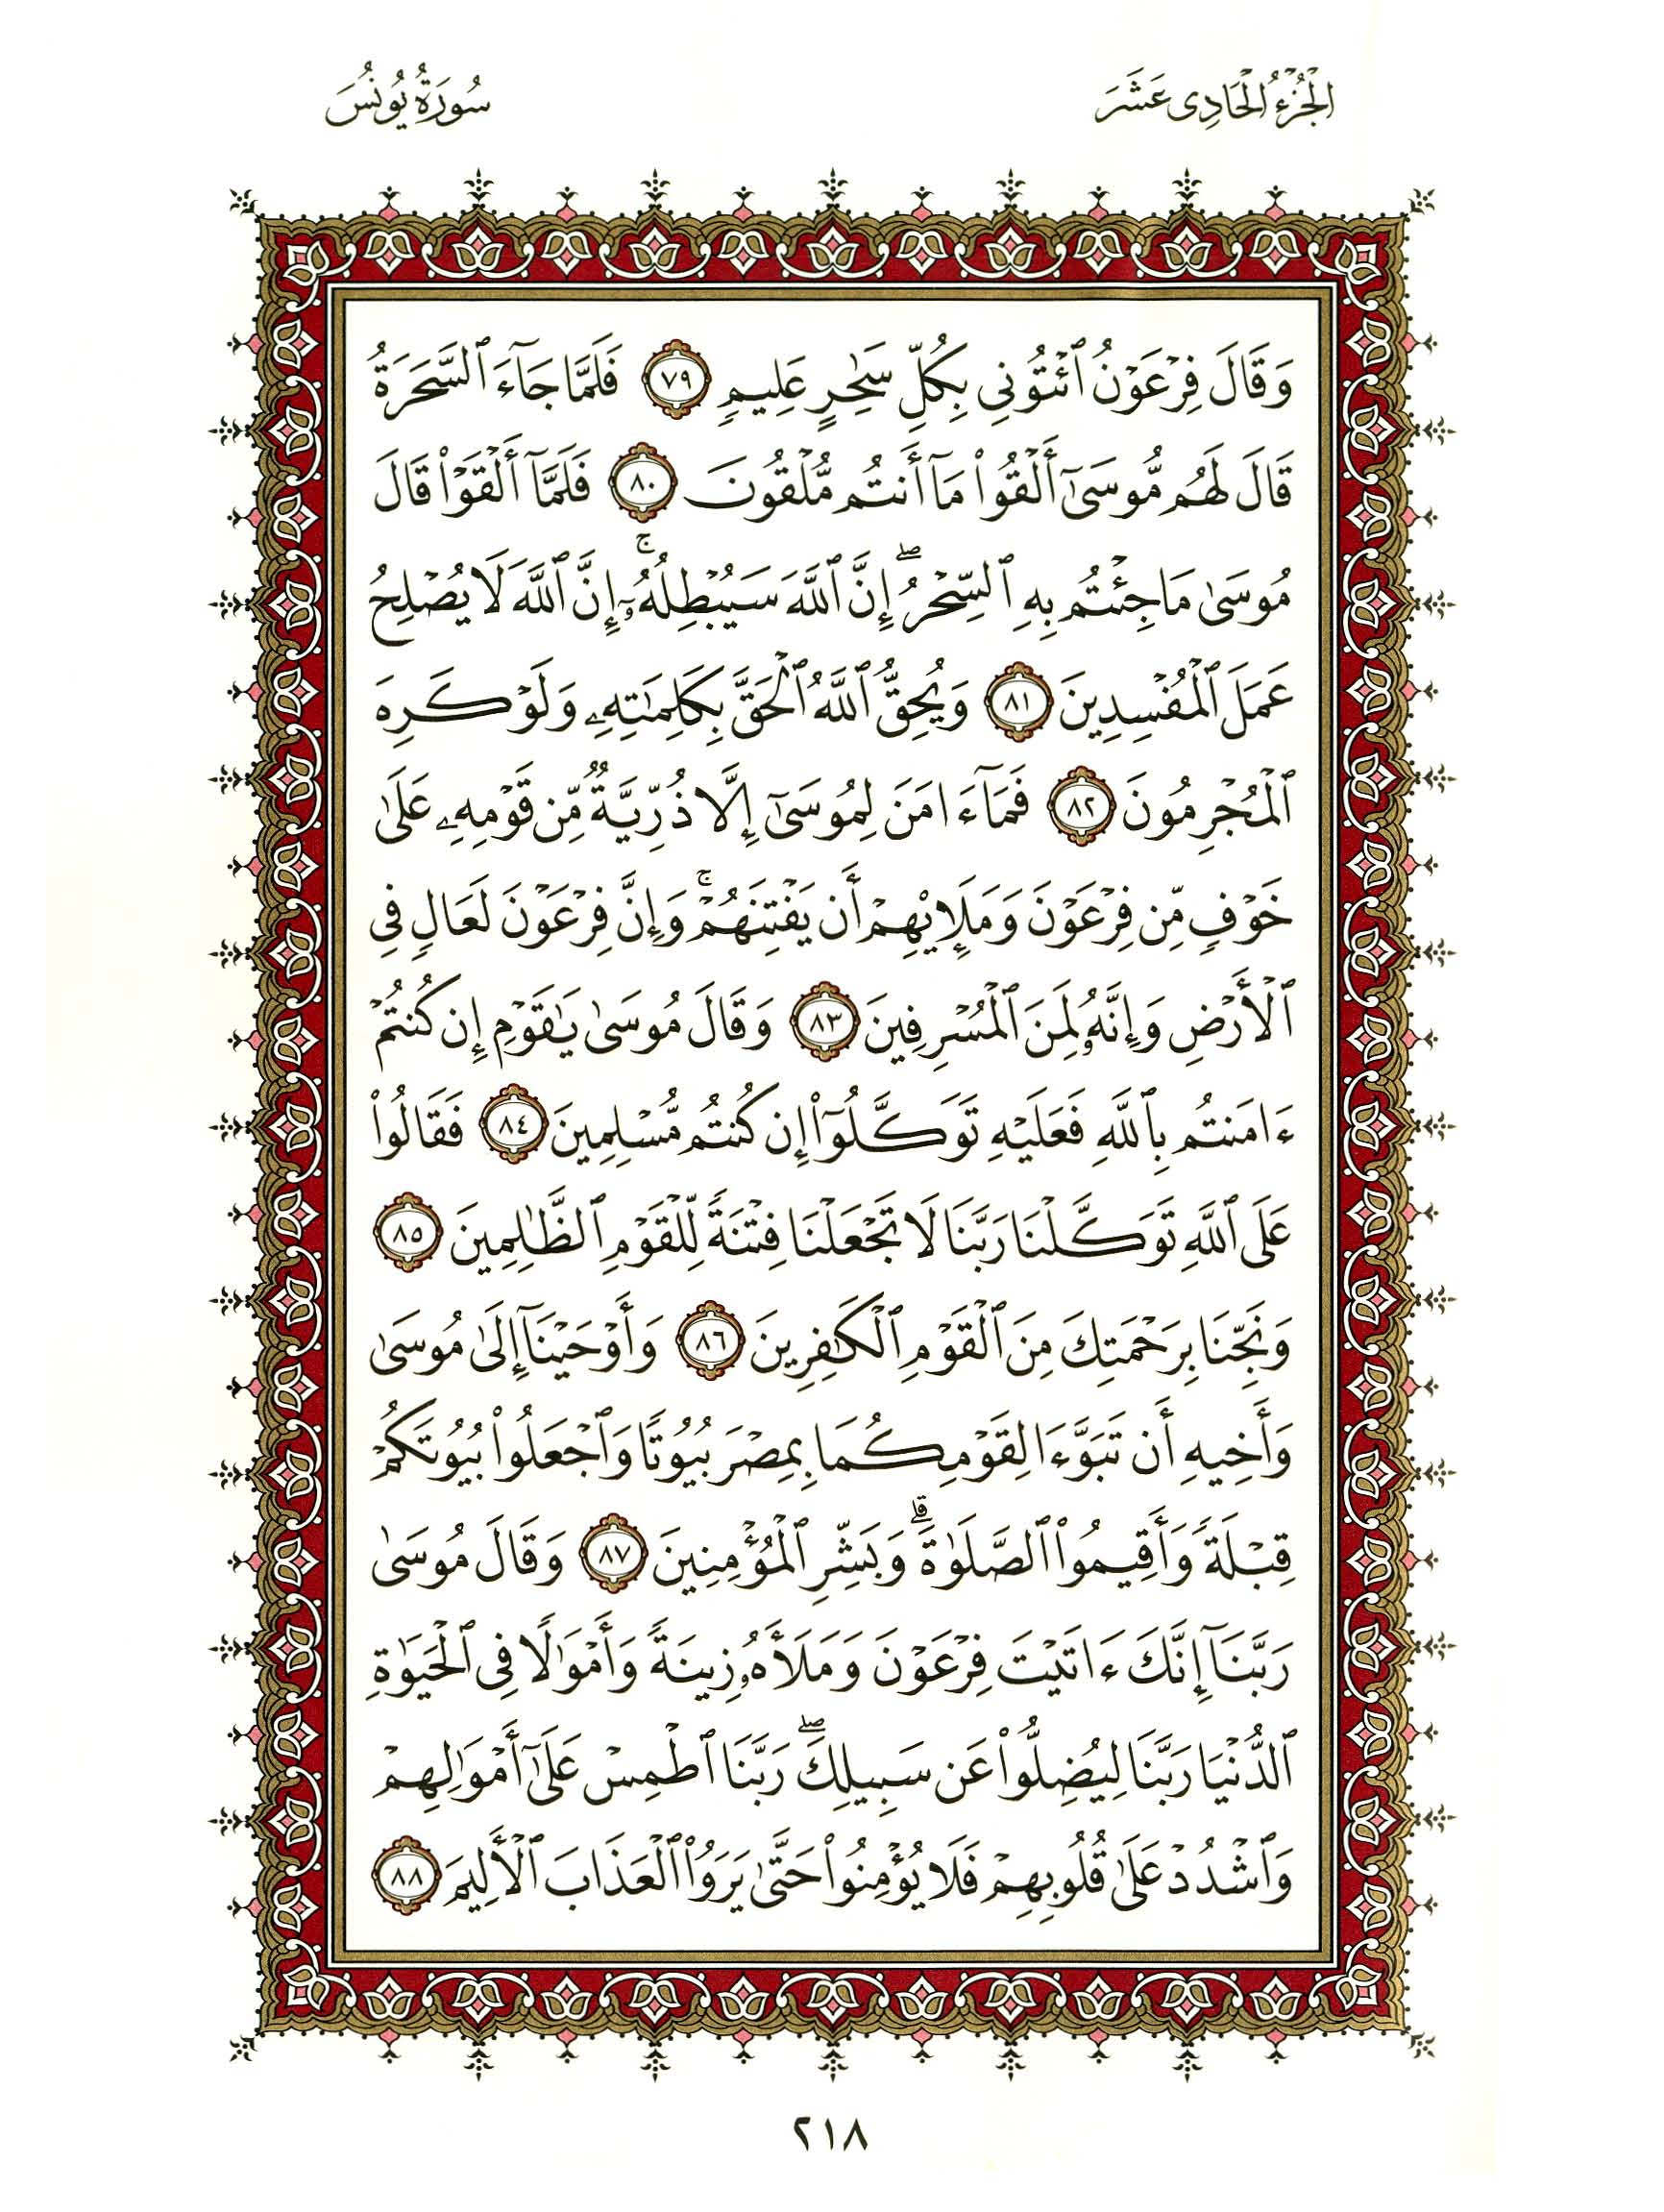 الجُزْءُ الحَادِى عَشَرَ
سُورَةُ يُونُسَ
وَقَالَ فِرْعَوْنُ ٱئْتُونِى بِكُلِّ سَٰحِرٍ عَلِيمٍ ٧٩ فَلَمَّا جَآءَ ٱلسَّحَرَةُ
قَالَ لَهُم مُّوسَىٰٓ أَلْقُوا۟ مَآ أَنتُم مُّلْقُونَ ٨٠ فَلَمَّآ أَلْقَوْا۟ قَالَ
مُوسَىٰ مَا جِئْتُم بِهِ ٱلسِّحْرُ ۖ إِنَّ ٱللَّهَ سَيُبْطِلُهُۥٓ ۚ إِنَّ ٱللَّهَ لَا يُصْلِحُ
عَمَلَ ٱلْمُفْسِدِينَ ٨١ وَيُحِقُّ ٱللَّهُ ٱلْحَقَّ بِكَلِمَٰتِهِۦ وَلَوْ كَرِهَ
ٱلْمُجْرِمُونَ ٨٢ فَمَآ ءَامَنَ لِمُوسَىٰٓ إِلَّا ذُرِّيَّةٌ مِّن قَوْمِهِۦ عَلَىٰ
خَوْفٍ مِّن فِرْعَوْنَ وَمَلَإِي۟هِمْ أَن يَفْتِنَهُمْ ۚ وَإِنَّ فِرْعَوْنَ لَعَالٍ فِى
ٱلْأَرْضِ وَإِنَّهُۥ لَمِنَ ٱلْمُسْرِفِينَ ٨٣ وَقَالَ مُوسَىٰ يَٰقَوْمِ إِن كُنتُمْ
ءَامَنتُم بِٱللَّهِ فَعَلَيْهِ تَوَكَّلُوٓا۟ إِن كُنتُم مُّسْلِمِينَ ٨٤ فَقَالُوا۟
عَلَى ٱللَّهِ تَوَكَّلْنَا رَبَّنَا لَا تَجْعَلْنَا فِتْنَةً لِّلْقَوْمِ ٱلظَّٰلِمِينَ ٨٥
وَنَجِّنَا بِرَحْمَتِكَ مِنَ ٱلْقَوْمِ ٱلْكَٰفِرِينَ ٨٦ وَأَوْحَيْنَآ إِلَىٰ مُوسَىٰ
وَأَخِيهِ أَن تَبَوَّءَا لِقَوْمِكُمَا بِمِصْرَ بُيُوتًا وَٱجْعَلُوا۟ بُيُوتَكُمْ
قِبْلَةً وَأَقِيمُوا۟ ٱلصَّلَوٰةَ ۗ وَبَشِّرِ ٱلْمُؤْمِنِينَ ٨٧ وَقَالَ مُوسَىٰ
رَبَّنَآ إِنَّكَ ءَاتَيْتَ فِرْعَوْنَ وَمَلَأَهُۥ زِينَةً وَأَمْوَٰلًا فِى ٱلْحَيَوٰةِ
ٱلدُّنْيَا رَبَّنَا لِيُضِلُّوا۟ عَن سَبِيلِكَ ۖ رَبَّنَا ٱطْمِسْ عَلَىٰٓ أَمْوَٰلِهِمْ
وَٱشْدُدْ عَلَىٰ قُلُوبِهِمْ فَلَا يُؤْمِنُوا۟ حَتَّىٰ يَرَوُا۟ ٱلْعَذَابَ ٱلْأَلِيمَ ٨٨
٢١٨